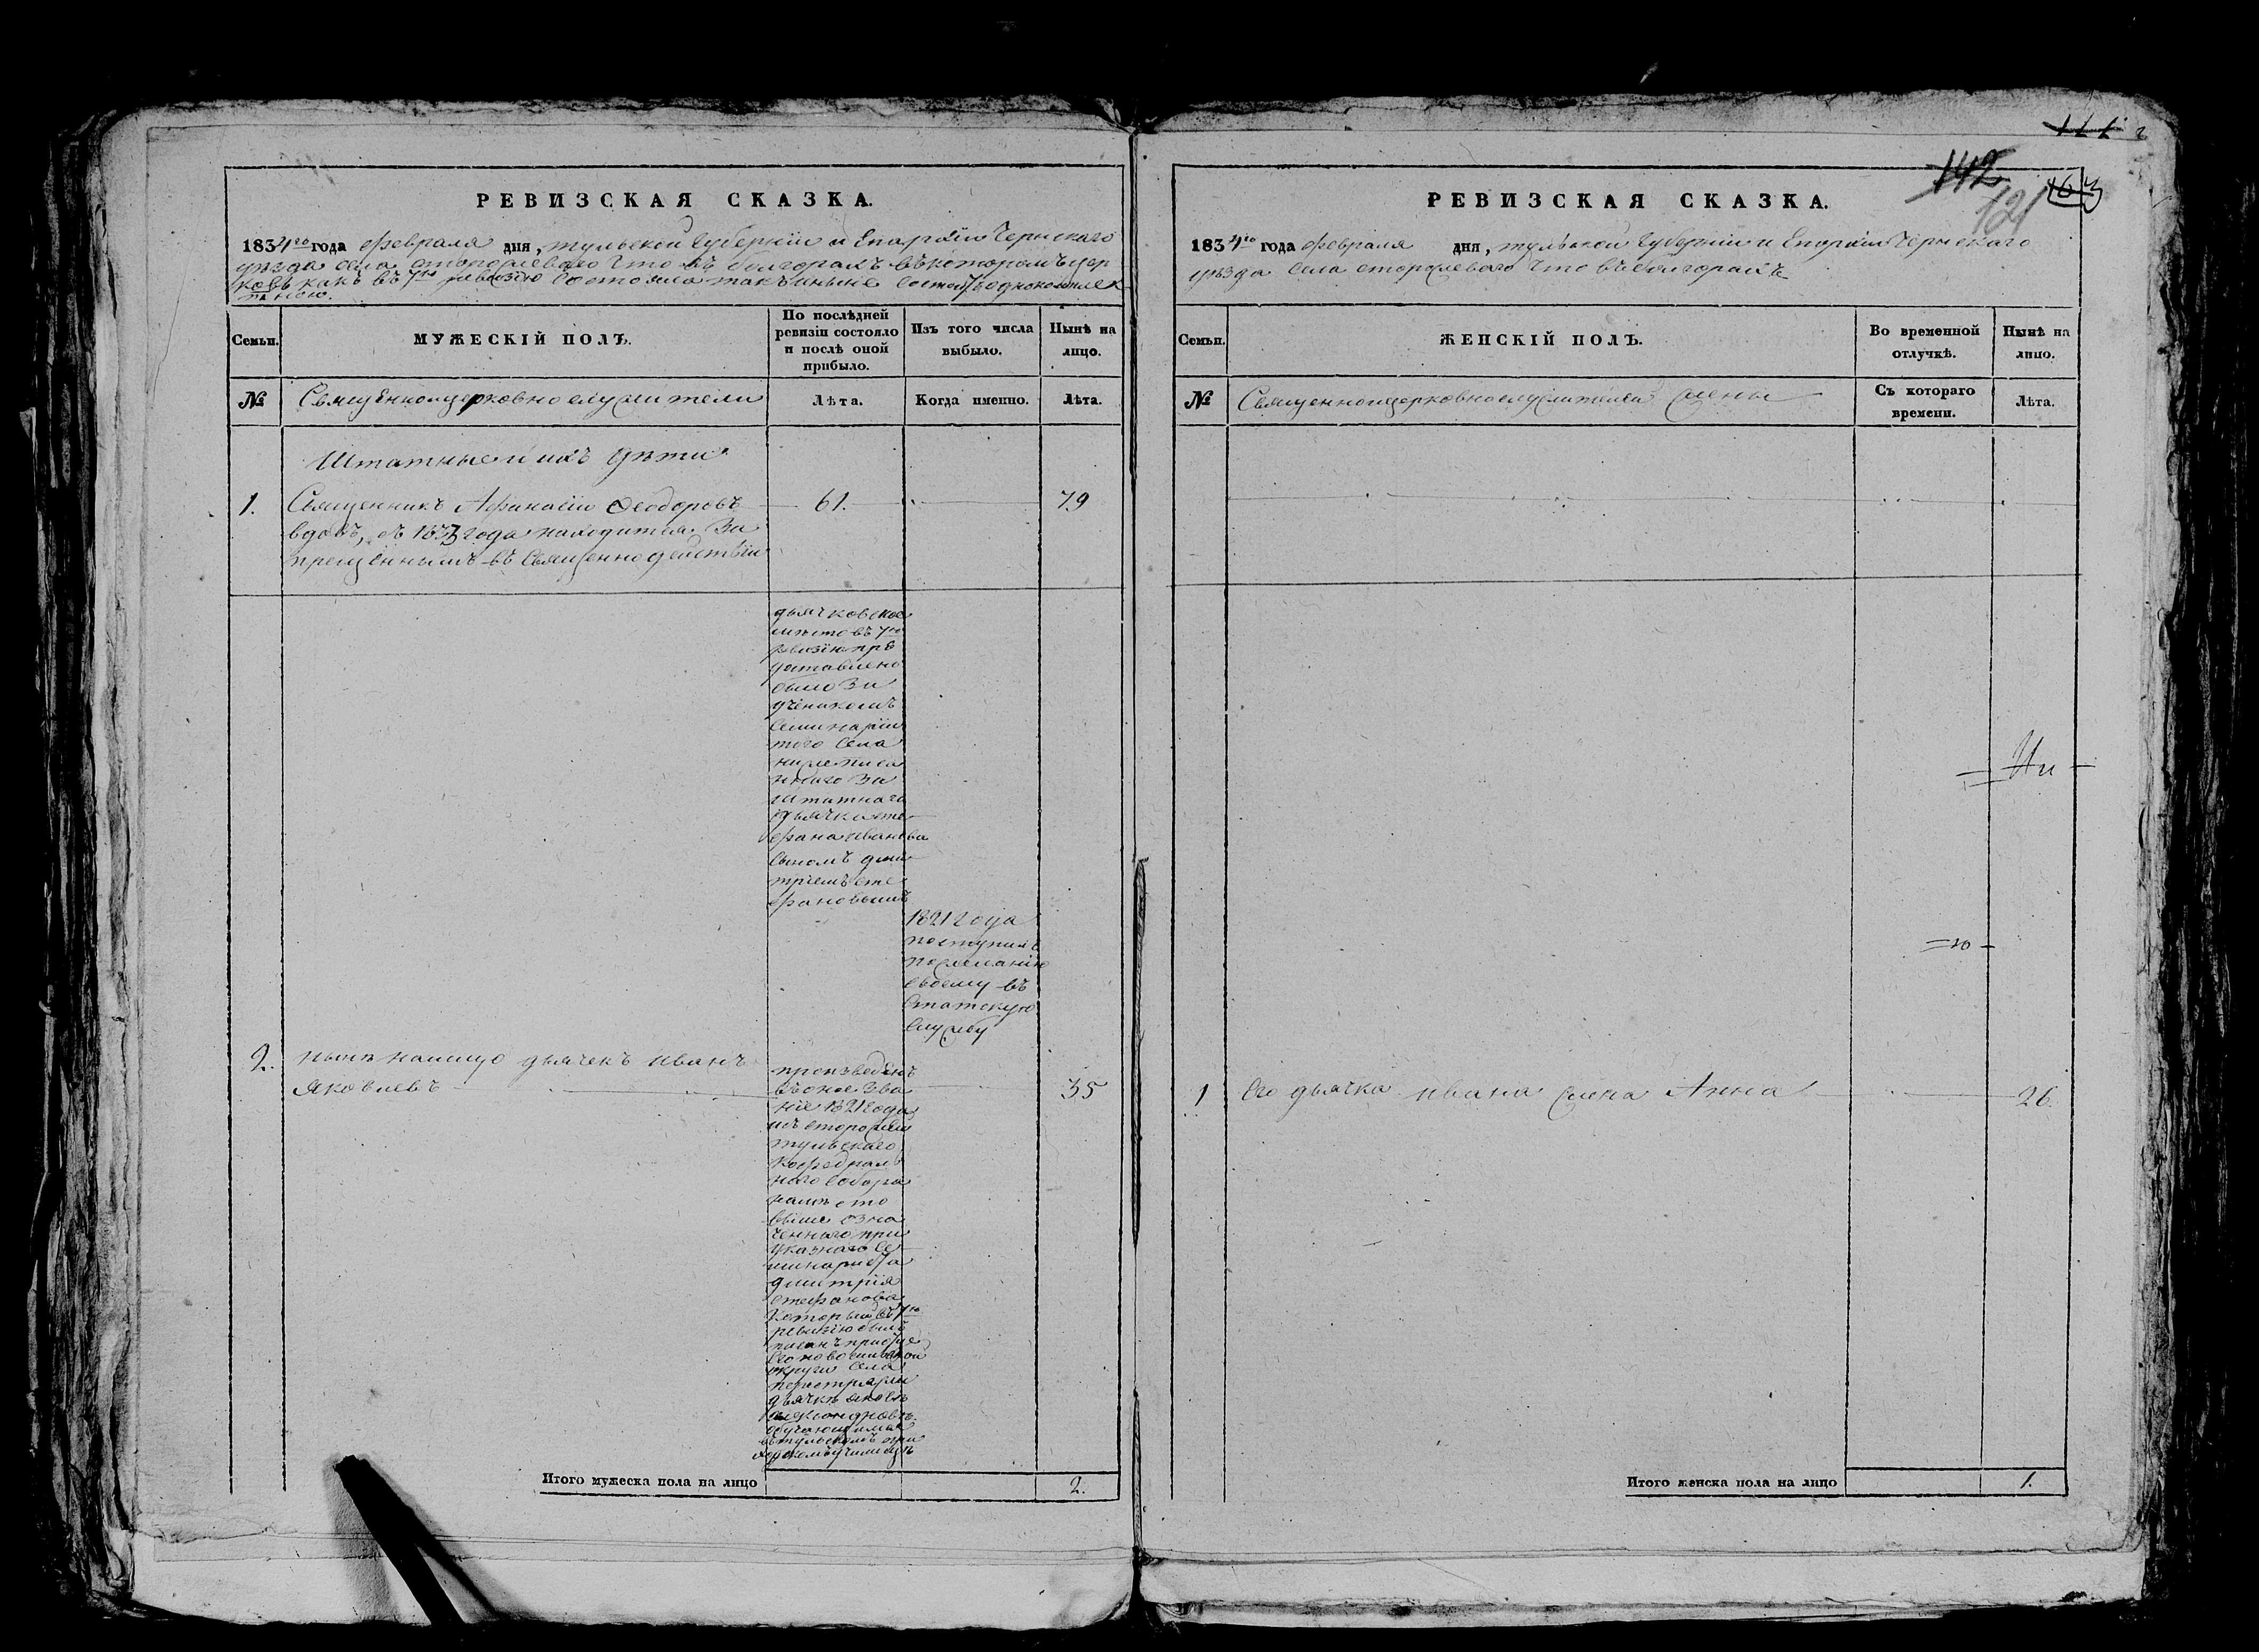 142
121
РЕВИЗСКАЯ СКАЗКА.
1834го года февраля дня, тульской Губернии и Епархии Чернскаго
уезда села сторожеваго что въ болгорахъ въ которомъ цер
ковь какъ въ 7ю ревизию состояла такъ и ныне состоитъ однокомплек
тною.
Семьи.
МУЖЕСКІЙ ПОЛЪ.
По послѣдней
ревизіи состояло
и послѣ оной
прибыло.
Изъ того числа
выбыло.
Нынѣ на
лицо.
№
Священноцерковнослужители
Лѣта.
Когда именно.
Лѣта.
Штатные и ихъ дѣти
1.
Священникъ Афанасій Феодоровъ
61.
79
вдовъ, съ 1833 года находится за
прещеннымъ въ священнодействіи
дьячковское
место въ 7ю
ревизію пре
доставлено
было за
ученикомъ
Семинаріи
того села
нижеписа
ннаго за
штатнаго
дьячка Сте
фана Иванова
сыномъ Дми
тріемъ Сте
фановымъ
1821 года
поступилъ
по желанію
своему въ
статскую
службу
2.
нынѣ налицо дьячекъ Иванъ
Яковлевъ
35
произведенъ
въ оное зва
ніе 1821 года
изъ сторожей
тульскаго
кафедраль
наго собора
на мѣсто
выше озна
ченнаго при
указнаго се
минариста
Дмитрія
Стефанова
который въ 7ю
ревизію былъ
писанъ при отце
его новосильской
округи села
дьячкѣ Яковѣ
обучающимся
въ тульскомъ при
ходскомъ училищѣ
Итого мужеска пола на лицо
2.
РЕВИЗСКАЯ СКАЗКА.
1834го года февраля дня, тульской Губерніи и Епархіи Чернскаго
уѣзда села сторожеваго что въ болгорахъ
Семьи.
ЖЕНСКІЙ ПОЛЪ.
Во временной
отлучкѣ.
Нынѣ на
лицо.
№
Священноцерковнослужителей жены
Съ котораго
времени.
Лѣта.
1
Его дьячка Ивана жена Анна
26.
Итого женска пола на лицо
1.